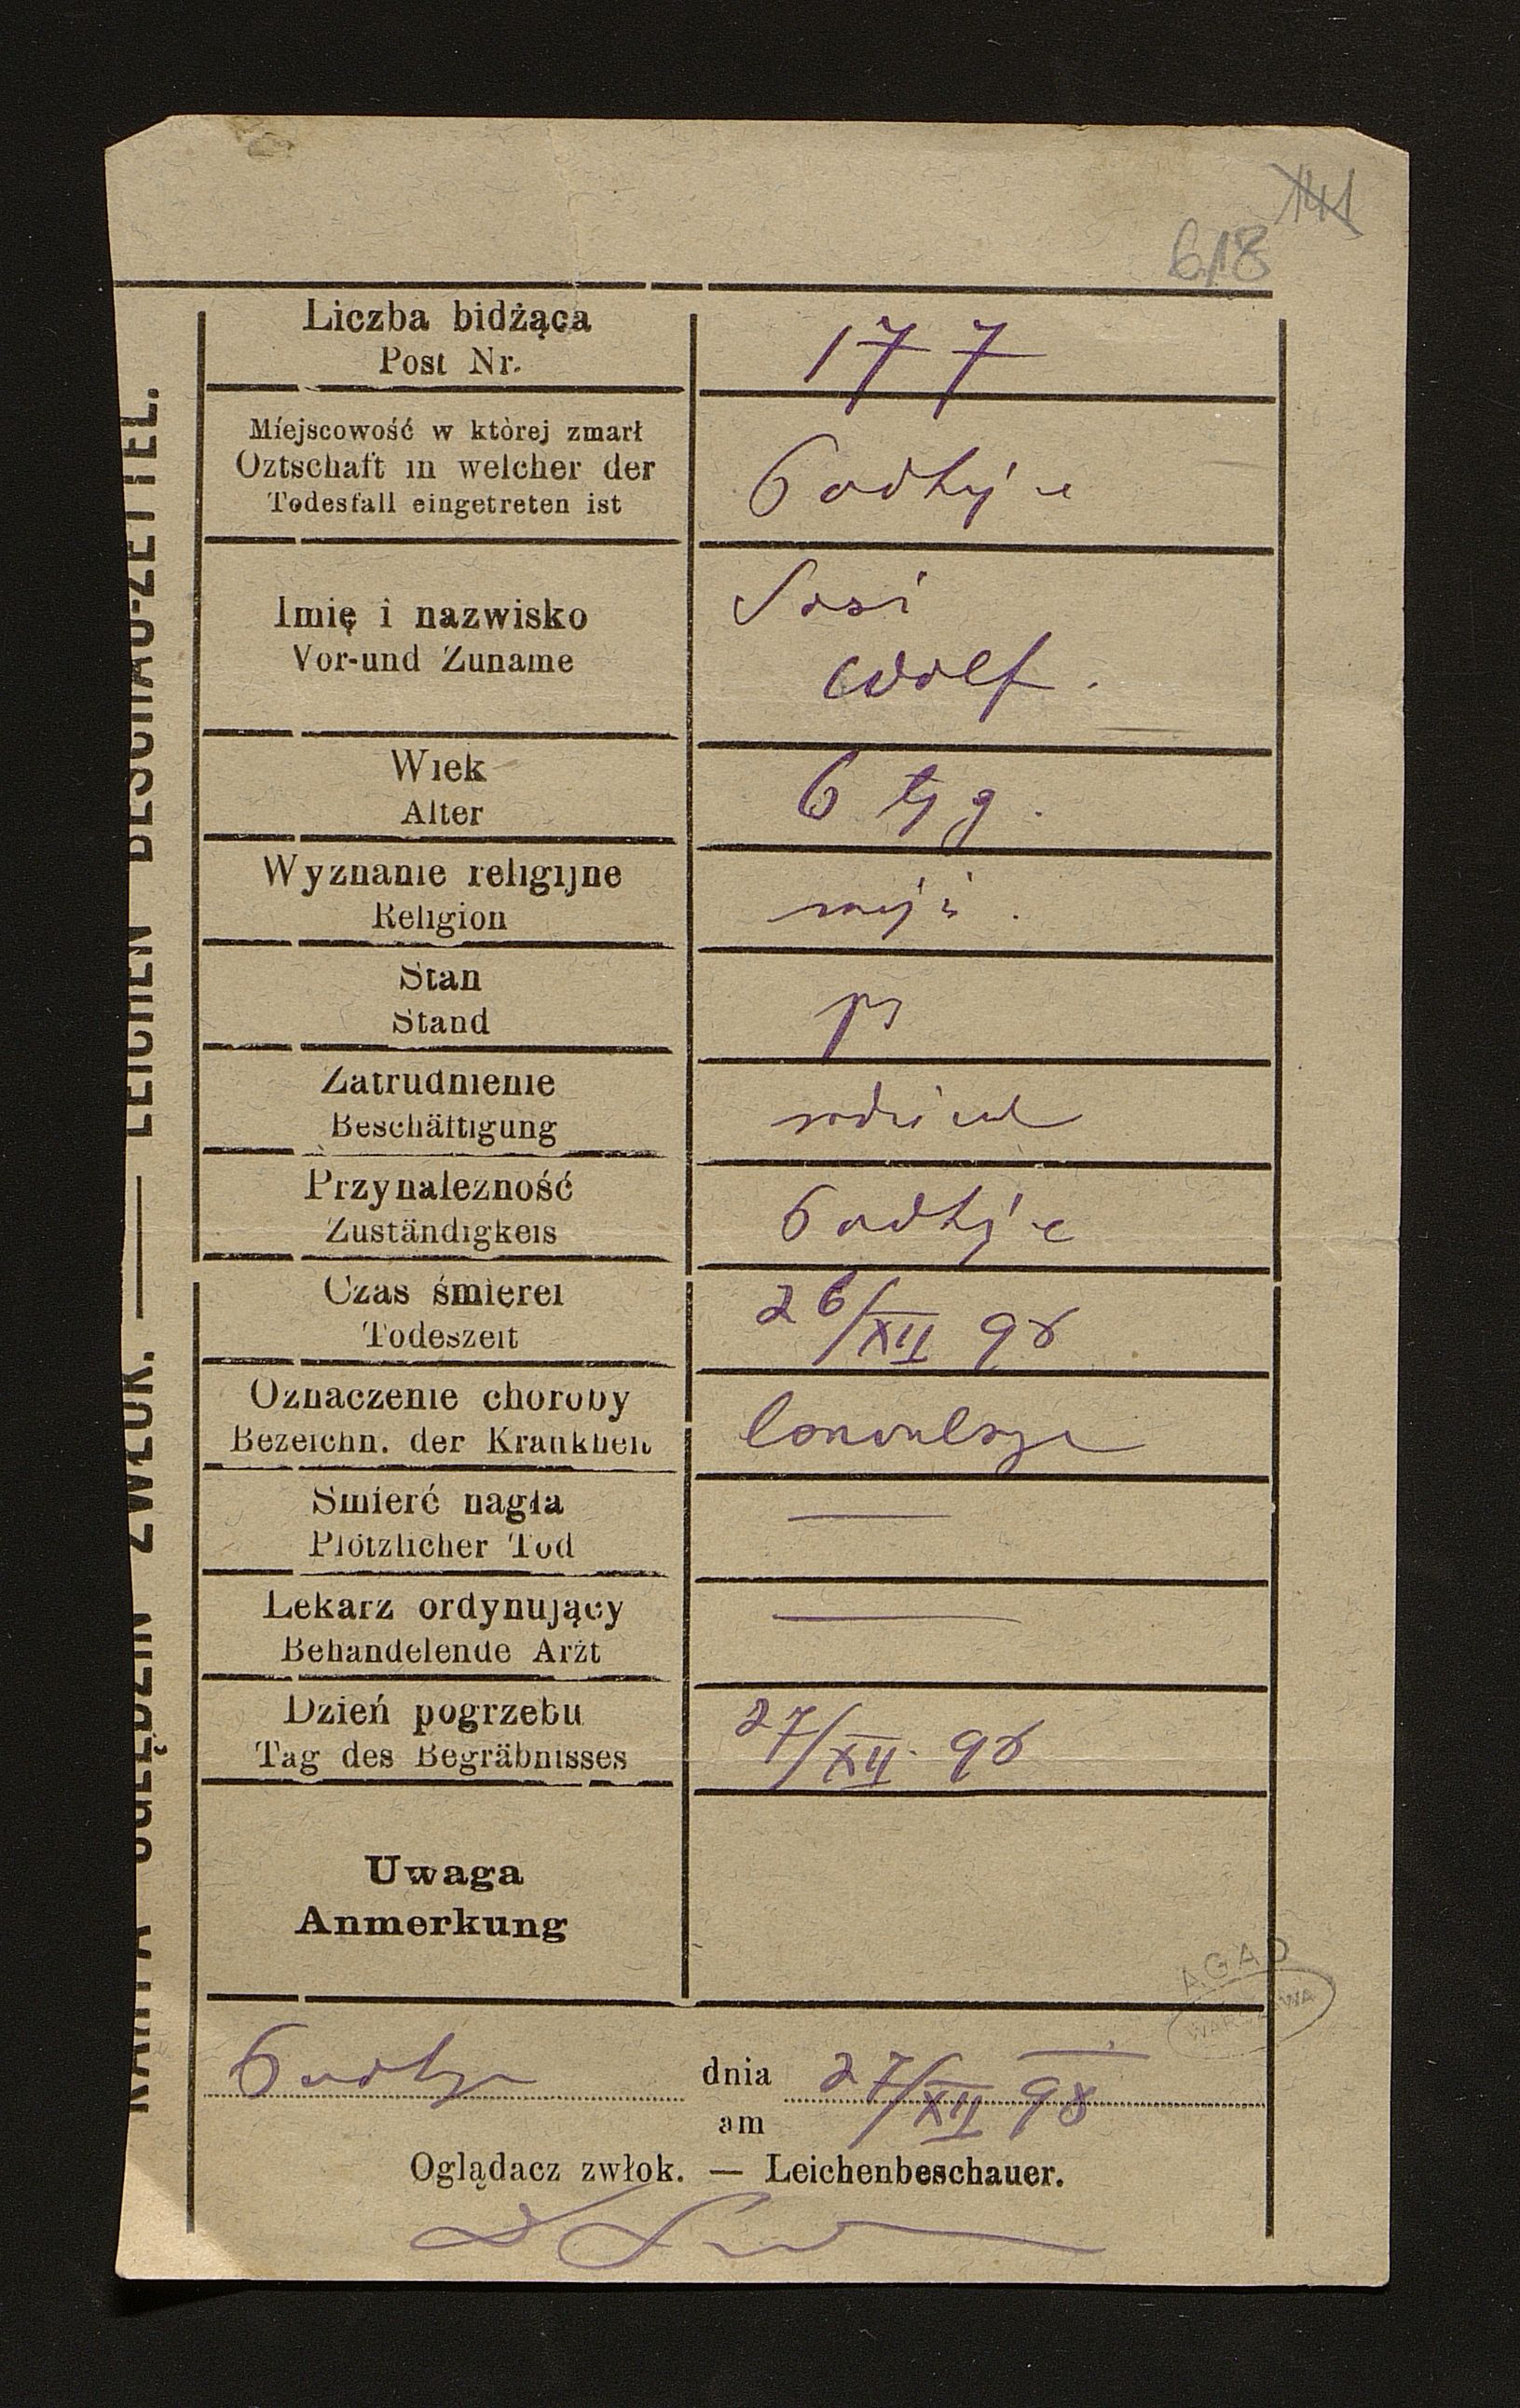 141
618
KARTA OGLĘDZIN ZWŁOK. — LEICHEN BESCHAU-ZETTEL.
Liczba bidżąca
Post Nr.
177
Miejscowość w której zmarł
Oztschaft in welcher der
Todesfall eingetreten ist
Imię i nazwisko
Vor-und Zuname
Wolf.
Wiek
Alter
6 tyg.
Wyznanie religijne
Religion
mojż.
Stan
Stand
Zatrudnienie
Beschäftigung
Przynalezność
Zuständigkeis
Czas śmierei
Todeszeit
26/XII 98
Oznaczenie choroby
Bezeichn. der Krankheit
Convulsye
Smierć nagła
Plötzlicher Tod
—
Lekarz ordynujący
Behandelende Arżt
—
Dzień pogrzebu
Tag des Begräbnisses
27/XII 98
Uwaga
Anmerkung
AGAD
WARSZAWA
dnia 27/XII 98
am
Oglądacz zwłok. — Leichenbeschauer.